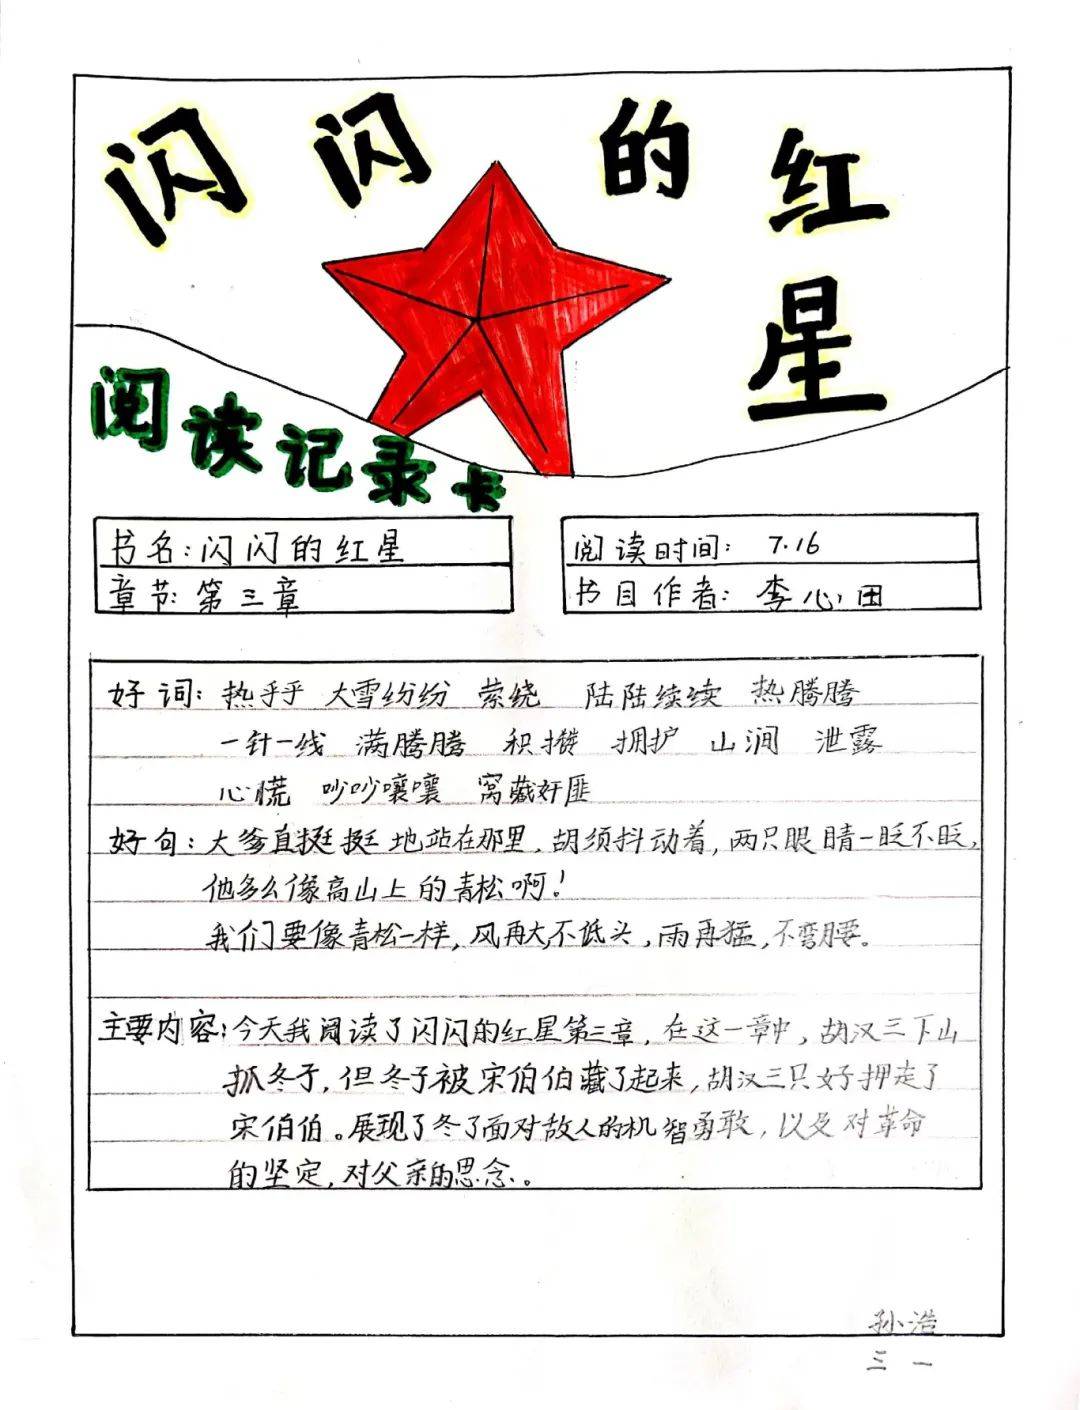 闪闪的红星
阅读记录卡
书名:闪闪的红星
章节:第三章
阅读时间: 7.16
书目作者:李心田
好词: 热乎乎 大雪纷纷 萦绕 陆陆续续 热腾腾
一针一线 满腾腾 积攒 拥护 山涧 泄露
心慌 吵吵嚷嚷 窝藏奸匪
好句:大爹直挺挺地站在那里,胡须抖动着,两只眼睛一眨不眨,
他多么像高山上的青松啊!
我们要像青松一样,风再大,不低头,雨再猛,不弯腰。
主要内容:今天我阅读了闪闪的红星第三章,在这一章中,胡汉三下山
抓冬子,但冬子被宋伯伯藏了起来,胡汉三只好押走了
宋伯伯。展现了冬子面对敌人的机智勇敢,以及对革命
的坚定,对父亲的思念。
孙浩
三 一